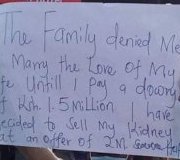 The Family denied Me
Marry the Love of My
fe Untill I Pay a dowry
f Ksh. 1.5 Million I have
ecided to Sell My Kidney
at an offer of 2M